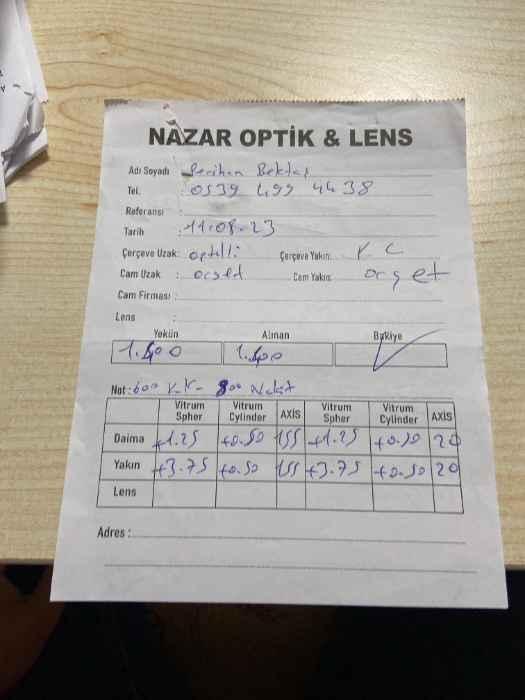 NAZAR OPTİK & LENS
Adı Soyadı Perihan Bektaş
Tel. : 0539 499 4438
Referansı :
Tarih : 11.08.23
Çerçeve Uzak: optelli Çerçeve Yakın: K.C
Cam Uzak : orget Cam Yakın: orget
Cam Firması :
Lens :
Yekün Alınan Bakiye
1.400 1.400
Not: 600 K.K- 800 Nakit
Vitrum Spher Vitrum Cylinder AXİS Vitrum Spher Vitrum Cylinder AXİS
Daima +1.25 +0.50 155 +1.25 +0.50 20
Yakın +3.75 +0.50 155 +3.75 +0.50 20
Lens
Adres :